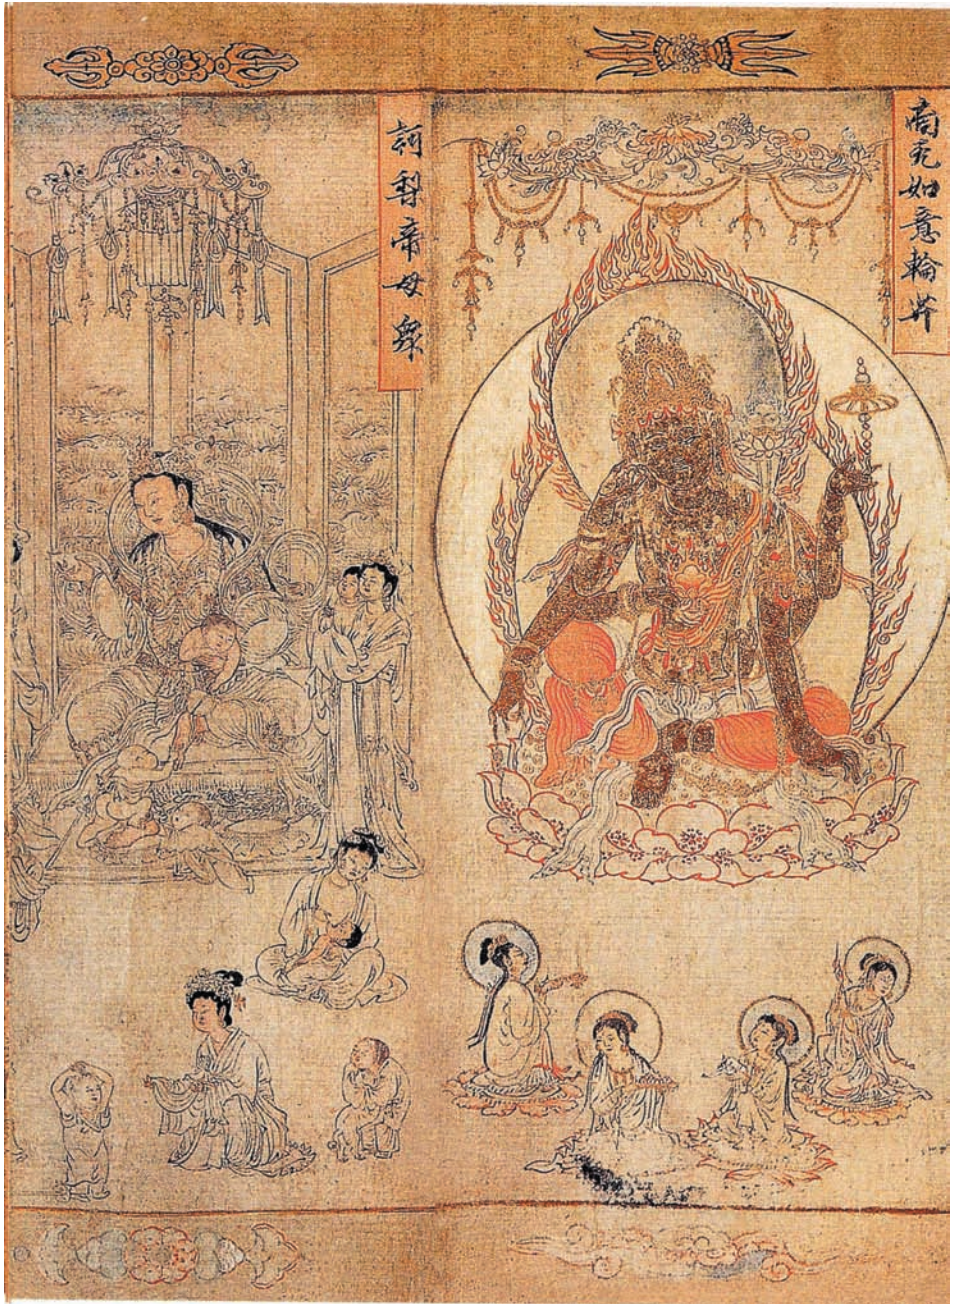 南无如意輪𦬇
訶梨帝母衆